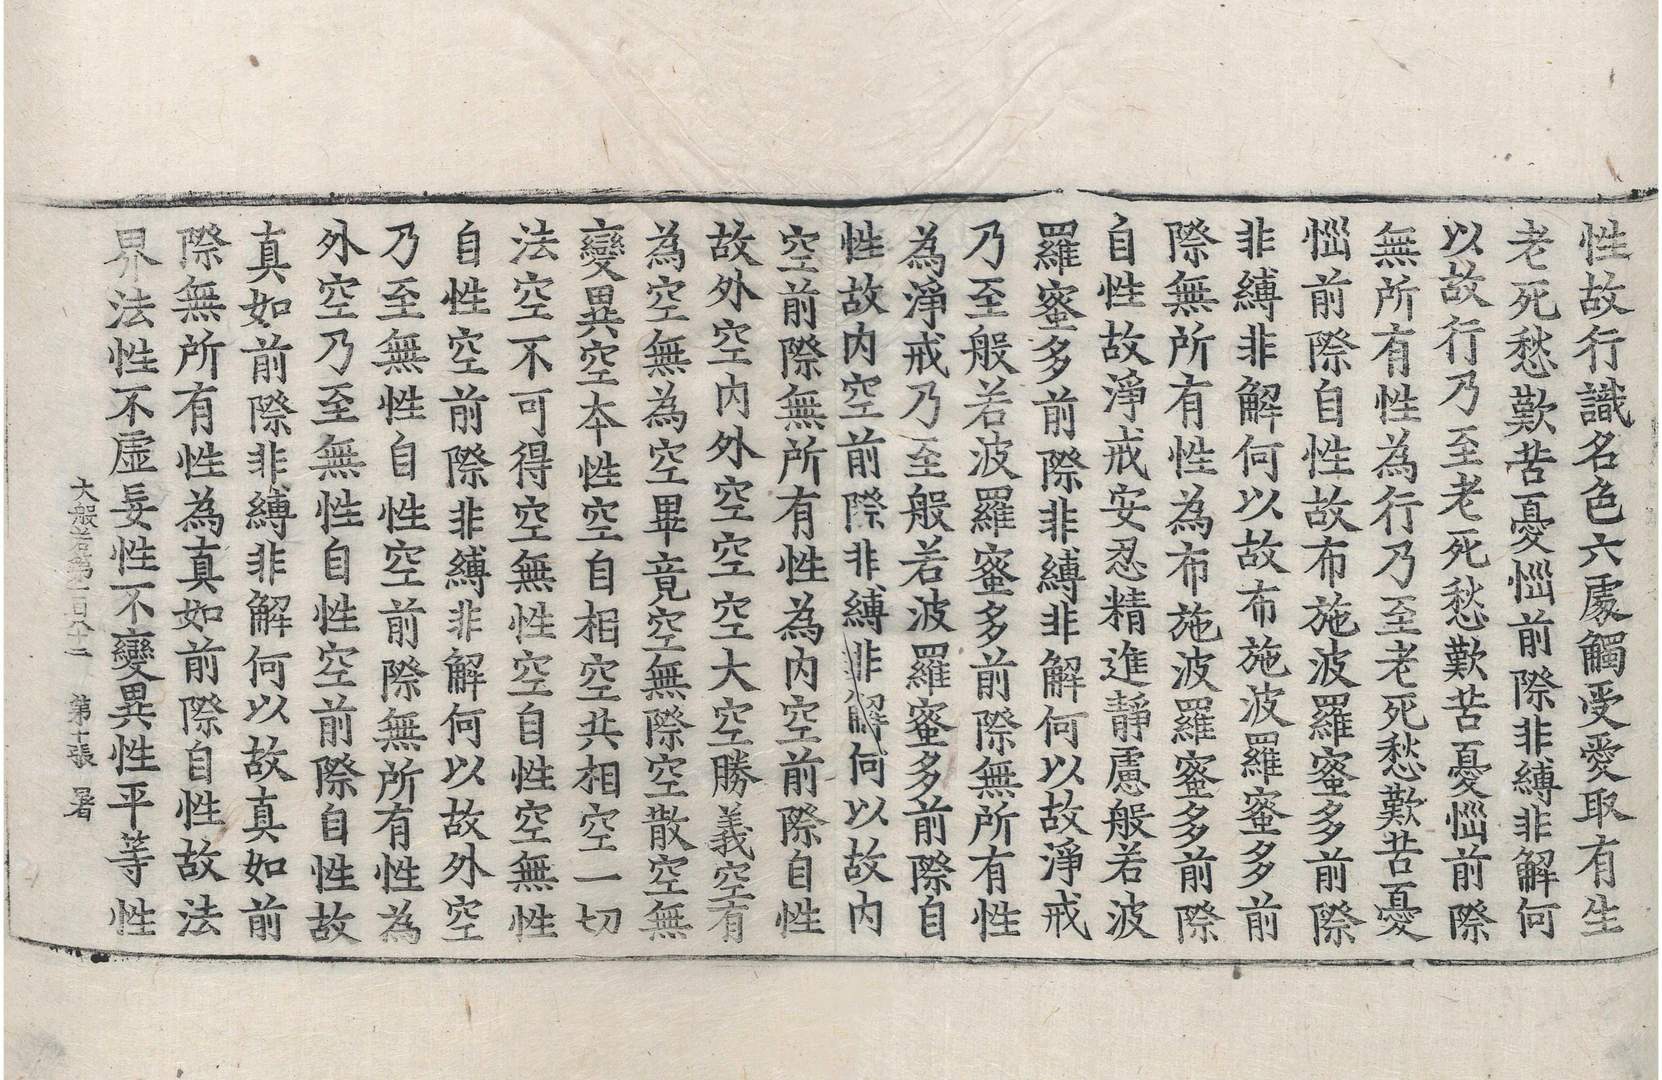 性故行識名色六處觸受愛取有生
老死愁歎苦憂惱前際非縛非解何
以故行乃至老死愁歎苦憂惱前際
無所有性為行乃至老死愁歎苦憂
惱前際自性故布施波羅蜜多前際
非縛非解何以故布施波羅蜜多前
際無所有性為布施波羅蜜多前際
自性故淨戒安忍精進靜慮般若波
羅蜜多前際非縛非解何以故淨戒
乃至般若波羅蜜多前際無所有性
為淨戒乃至般若波羅蜜多前際自
性故內空前際非縛非解何以故內
空前際無所有性為內空前際自性
故外空內外空空空大空勝義空有
為空無為空畢竟空無際空散空無
變異空本性空自相空共相空一切
法空不可得空無性空自性空無性
自性空前際非縛非解何以故外空
乃至無性自性空前際無所有性為
外空乃至無性自性空前際自性故
真如前際非縛非解何以故真如前
際無所有性為真如前際自性故法
界法性不虛妄性不變異性平等性
大般若第一百八十二 第十張 暑